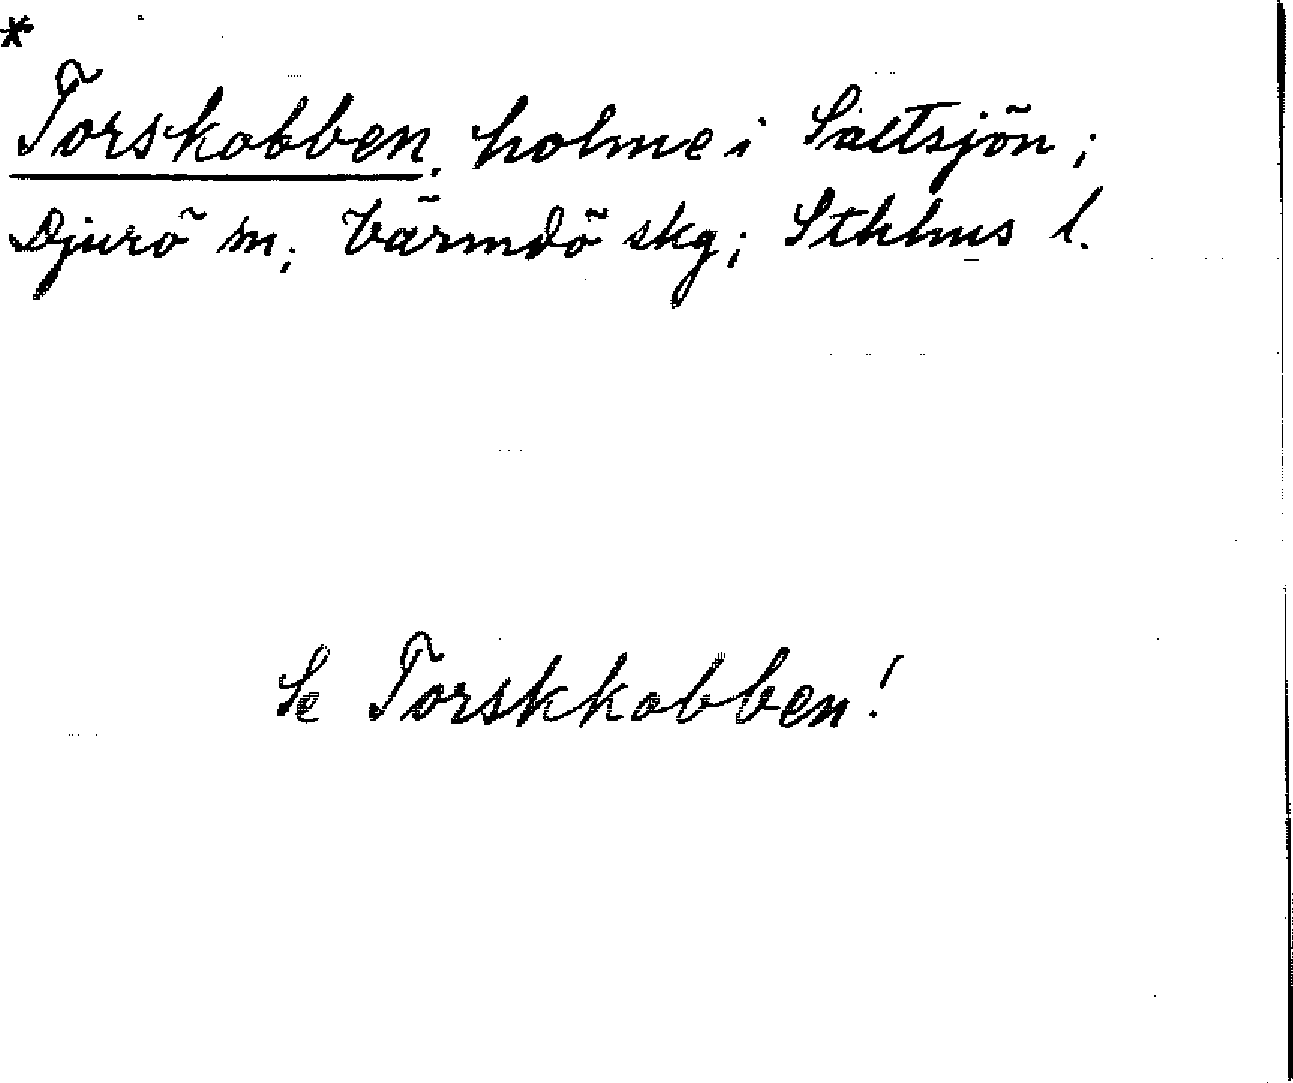 *
Torskobben. holme i Saltsjön;
Djurö sn; Värmdö skg; Sthlms l.
Se Torskkobben!